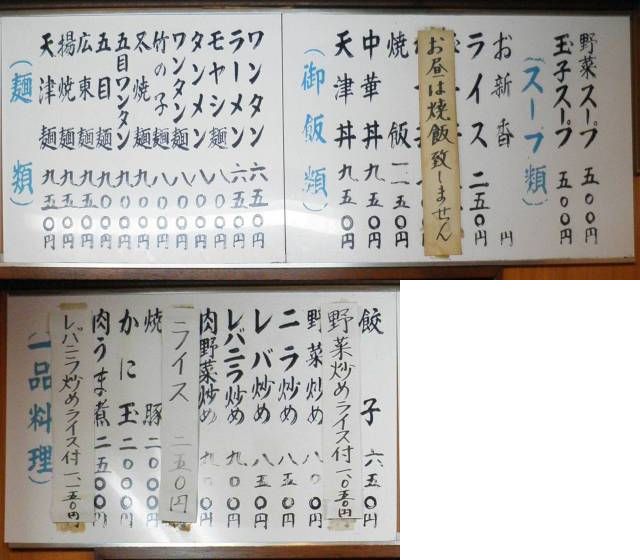 野菜スープ 五〇〇円
玉子スープ 五〇〇円
(スープ類)
お新香 円
ライス 二五〇円
お昼は焼飯致しません
焼飯 一一五〇円
中華丼 九五〇円
天津丼 九五〇円
(御飯類)
ワンタン 六五〇円
ラーメン 六五〇円
モヤシ麺 八〇〇円
タンメン 八〇〇円
ワンタン麺 八〇〇円
竹の子麺 八〇〇円
叉焼麺 九〇〇円
五目ワンタン 九〇〇円
五目麺 九〇〇円
広東麺 九〇〇円
揚焼麺 九〇〇円
天津麺 九五〇円
(麺類)
餃子 六五〇円
野菜炒めライス付 一、〇五〇円
野菜炒め 八〇
ニラ炒め 八五〇円
レバ炒め 八五〇円
レバニラ炒め 九〇〇円
肉野菜炒め 九〇〇円
ライス 二五〇円
焼豚 二〇〇〇円
かに玉 二〇〇〇円
肉うま煮 二五〇〇円
レバニラ炒めライス付 一、一五〇円
(一品料理)